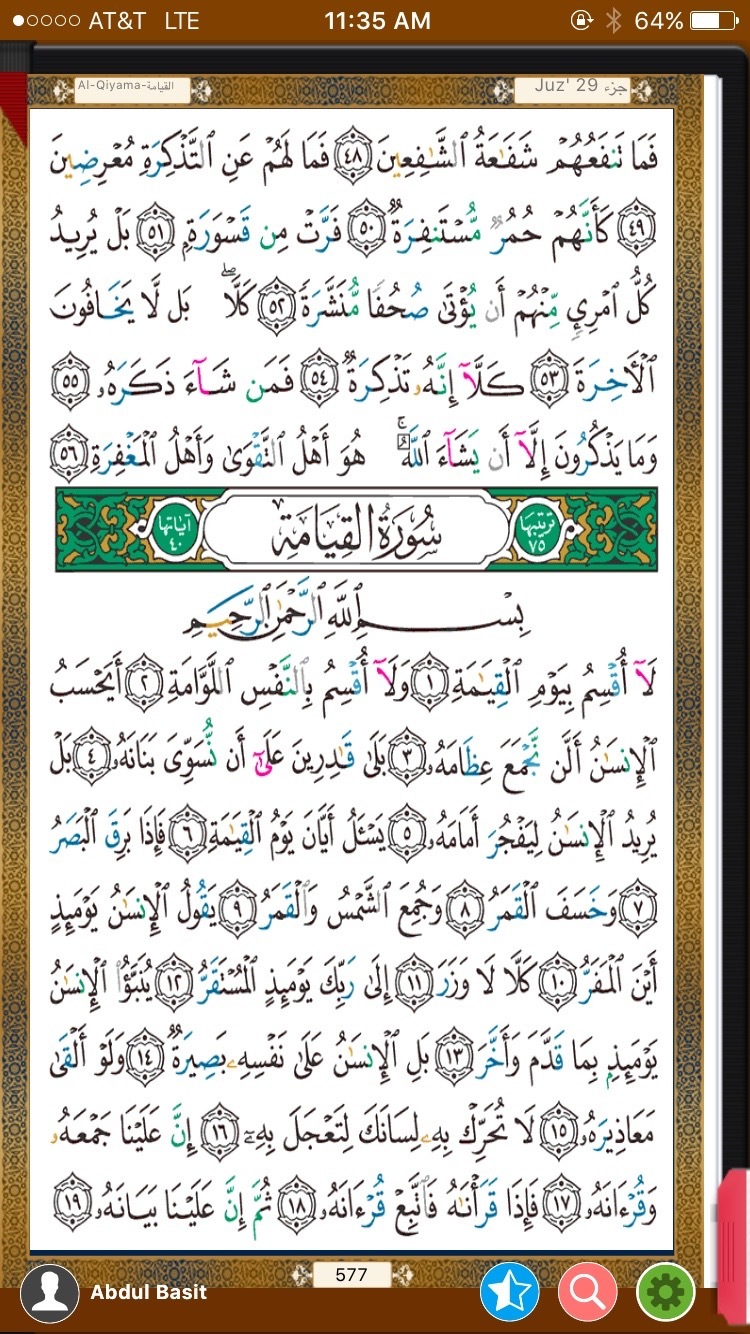 AT&T LTE 11:35 AM 64%
Al-Qiyama-القيامة Juz' 29 جزء
فَمَا تَنفَعُهُمْ شَفَـٰعَةُ ٱلشَّـٰفِعِينَ ٤٨ فَمَا لَهُمْ عَنِ ٱلتَّذْكِرَةِ مُعْرِضِينَ
٤٩ كَأَنَّهُمْ حُمُرٌ مُّسْتَنفِرَةٌ ٥٠ فَرَّتْ مِن قَسْوَرَةٍ ٥١ بَلْ يُرِيدُ
كُلُّ ٱمْرِئٍ مِّنْهُمْ أَن يُؤْتَىٰ صُحُفًا مُّنَشَّرَةً ٥٢ كَلَّا ۖ بَل لَّا يَخَافُونَ
ٱلْـَٔاخِرَةَ ٥٣ كَلَّآ إِنَّهُۥ تَذْكِرَةٌ ٥٤ فَمَن شَآءَ ذَكَرَهُۥ ٥٥
وَمَا يَذْكُرُونَ إِلَّآ أَن يَشَآءَ ٱللَّهُ ۚ هُوَ أَهْلُ ٱلتَّقْوَىٰ وَأَهْلُ ٱلْمَغْفِرَةِ ٥٦
ترتيبها ٧٥ سُورَةُ القِيَامَةِ آياتها ٤٠
بِسْمِ ٱللَّهِ ٱلرَّحْمَـٰنِ ٱلرَّحِيمِ
لَآ أُقْسِمُ بِيَوْمِ ٱلْقِيَـٰمَةِ ١ وَلَآ أُقْسِمُ بِٱلنَّفْسِ ٱللَّوَّامَةِ ٢ أَيَحْسَبُ
ٱلْإِنسَـٰنُ أَلَّن نَّجْمَعَ عِظَامَهُۥ ٣ بَلَىٰ قَـٰدِرِينَ عَلَىٰٓ أَن نُّسَوِّىَ بَنَانَهُۥ ٤ بَلْ
يُرِيدُ ٱلْإِنسَـٰنُ لِيَفْجُرَ أَمَامَهُۥ ٥ يَسْـَٔلُ أَيَّانَ يَوْمُ ٱلْقِيَـٰمَةِ ٦ فَإِذَا بَرِقَ ٱلْبَصَرُ
٧ وَخَسَفَ ٱلْقَمَرُ ٨ وَجُمِعَ ٱلشَّمْسُ وَٱلْقَمَرُ ٩ يَقُولُ ٱلْإِنسَـٰنُ يَوْمَئِذٍ
أَيْنَ ٱلْمَفَرُّ ١٠ كَلَّا لَا وَزَرَ ١١ إِلَىٰ رَبِّكَ يَوْمَئِذٍ ٱلْمُسْتَقَرُّ ١٢ يُنَبَّؤُا۟ ٱلْإِنسَـٰنُ
يَوْمَئِذٍۭ بِمَا قَدَّمَ وَأَخَّرَ ١٣ بَلِ ٱلْإِنسَـٰنُ عَلَىٰ نَفْسِهِۦ بَصِيرَةٌ ١٤ وَلَوْ أَلْقَىٰ
مَعَاذِيرَهُۥ ١٥ لَا تُحَرِّكْ بِهِۦ لِسَانَكَ لِتَعْجَلَ بِهِۦٓ ١٦ إِنَّ عَلَيْنَا جَمْعَهُۥ
وَقُرْءَانَهُۥ ١٧ فَإِذَا قَرَأْنَـٰهُ فَٱتَّبِعْ قُرْءَانَهُۥ ١٨ ثُمَّ إِنَّ عَلَيْنَا بَيَانَهُۥ ١٩
577
Abdul Basit